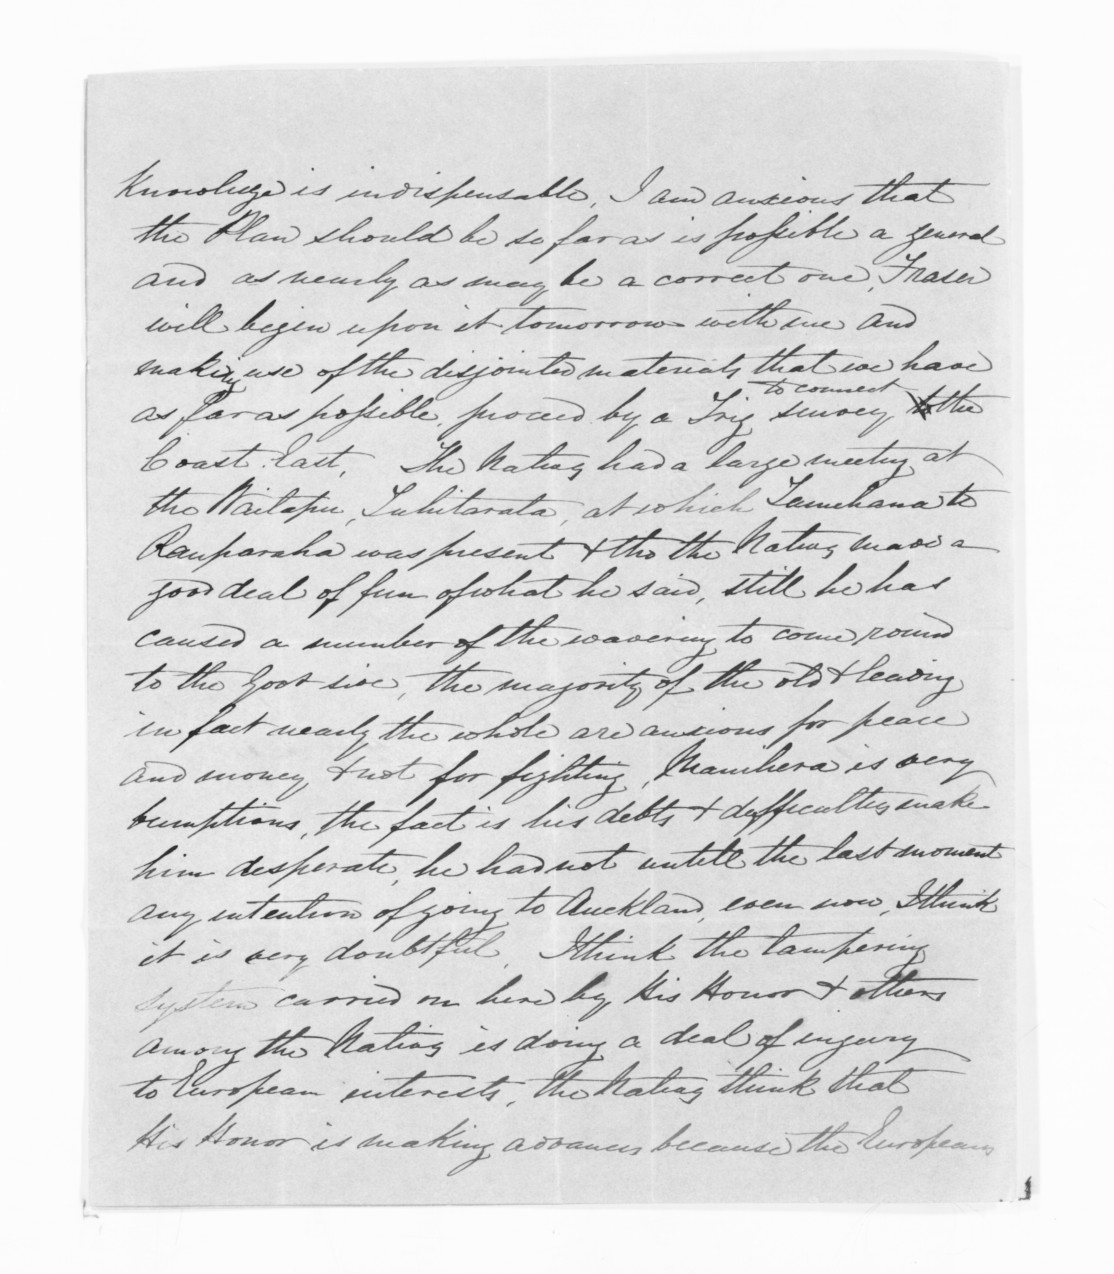 Knowledge is indispensable, I am anxious that
the Plan should be so far as is possible a general
and as nearly as may be a correct one, Fraser
will begin upon it tomorrow with me and
making use of the disjointed materials that we have
as far as possible, proceed by a Trig survey to connect the
Coast East, The Natives had a large meeting at
the Waitapu, Tuhitarata, at which Tamehana te
Rauparaha was present & tho the Natives made a
good deal of fun of what he said, still he has
caused a number of the wavering to come round
to the Govt side, the majority of the old & leading
in fact nearly the whole are anxious for peace
and money & not for fighting, Manihera is very
bumptious, the fact is his debts & difficulties make
him desperate, he had not untill the last moment
any intention of going to Auckland, even now, I think
it is very doubtful, I think the tampering
system carried on here by His Honor & others
among the Natives is doing a deal of injury
to European interests, the Natives think that
His Honor is making advances because the Europeans